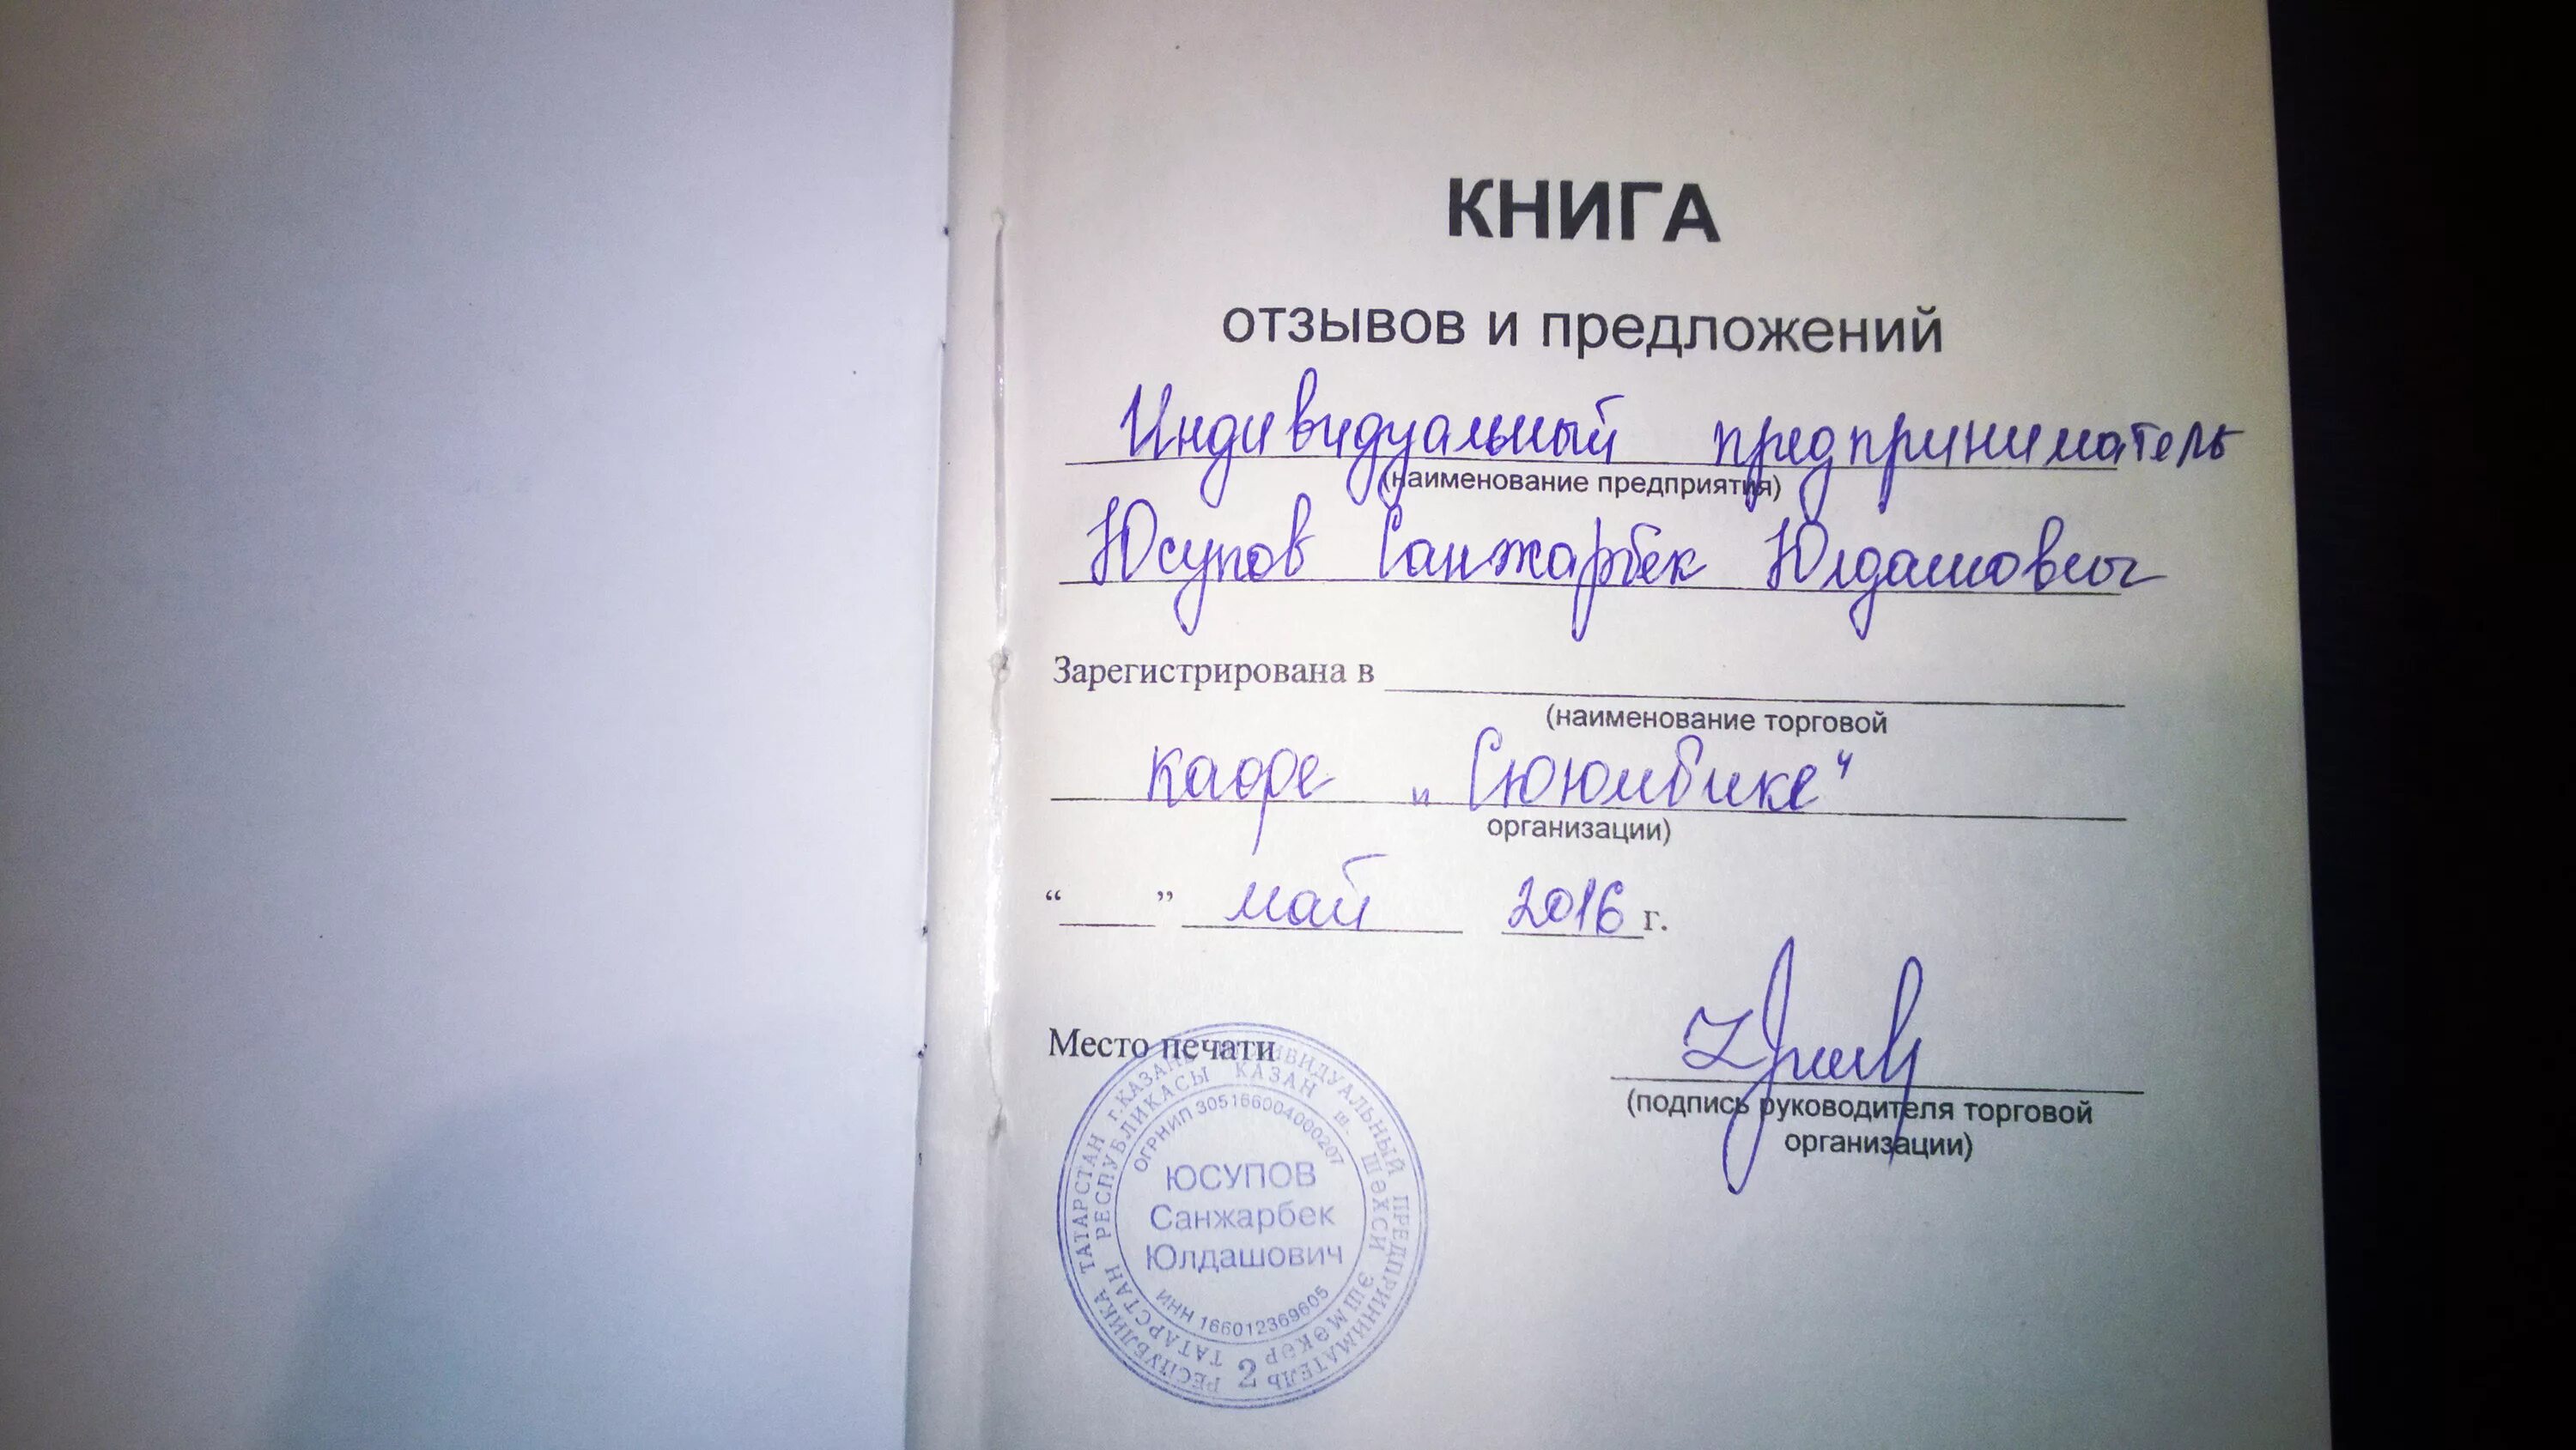 КНИГА
отзывов и предложений
Индивидуальный предприниматель
(наименование предприятия)
Юсупов Санжарбек Юлдашович
Зарегистрирована в
(наименование торговой
кафе „Сююмбике"
организации)
“ ” май 2016 г.
Место печати
(подпись руководителя торговой
организации)
РЕСПУБЛИКА ТАТАРСТАН г.КАЗАНЬ ИНДИВИДУАЛЬНЫЙ ПРЕДПРИНИМАТЕЛЬ
ТАТАРСТАН РЕСПУБЛИКАСЫ КАЗАН ш. ШӘХСИ ЭШМӘКӘР
2
ОГРНИП 305166004000207
ЮСУПОВ
Санжарбек
Юлдашович
ИНН 166012369605